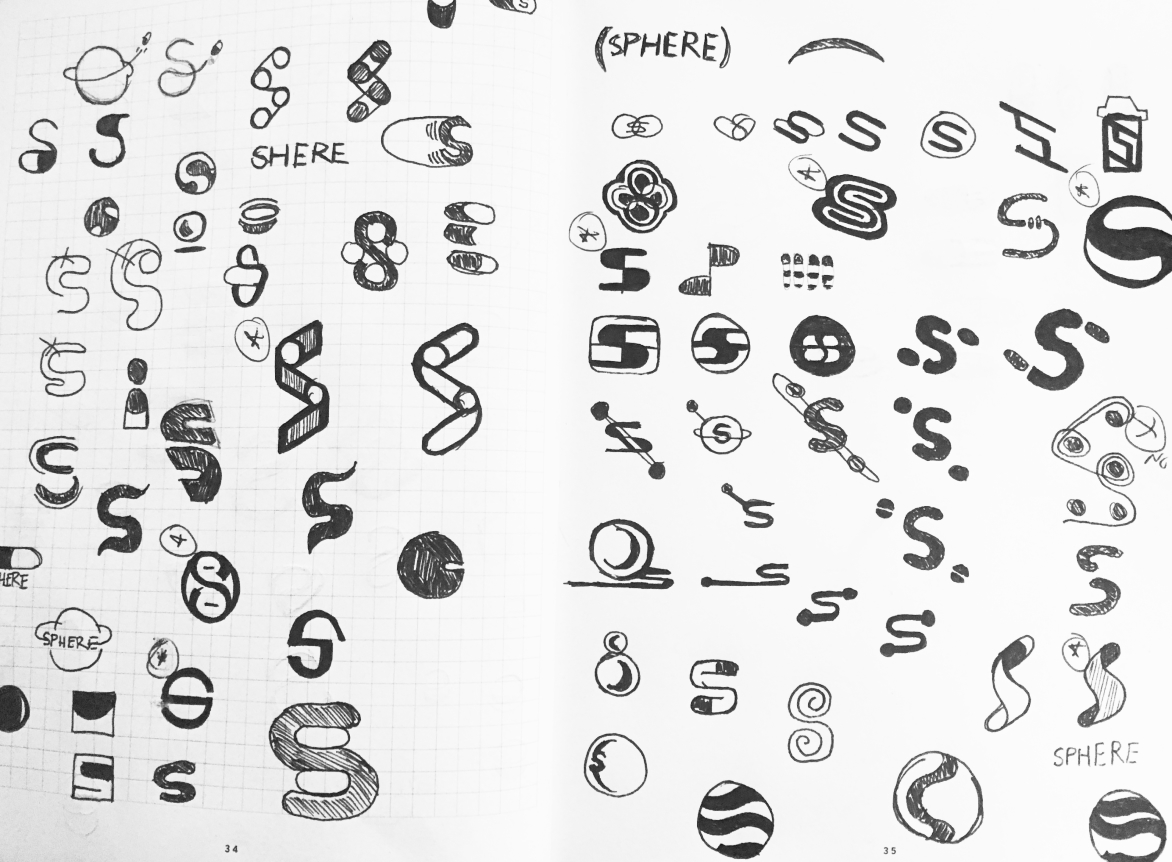 SHERE
HERE
SPHERE
34
(SPHERE)
NO
SPHERE
35